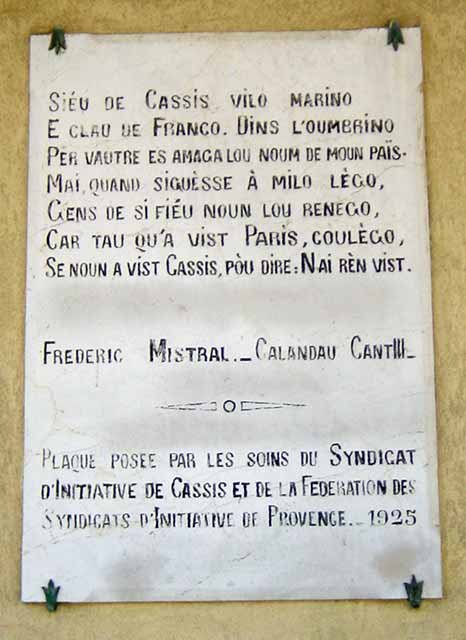 SIÉU DE CASSIS VILO MARINO
E CLAU DE FRANÇO. DINS L'OUMBRINO
PER VAUTRE ES AMAGA LOU NOUM DE MOUN PAÏS.
MAI, QUAND SIGUÈSSE À MILO LÈGO,
GENS DE SI FIÉU NOUN LOU RENEGO,
CAR TAU QU'A VIST PARIS, COULÈGO,
SE NOUN A VIST CASSIS, PÒU DIRE: N'AI RÈN VIST.
FREDERIC MISTRAL._ CALANDAU CANT III_
PLAQUE POSEE PAR LES SOINS DU SYNDICAT
D'INITIATIVE DE CASSIS ET DE LA FEDERATION DES
SYNDICATS D'INITIATIVE DE PROVENCE._ 1925